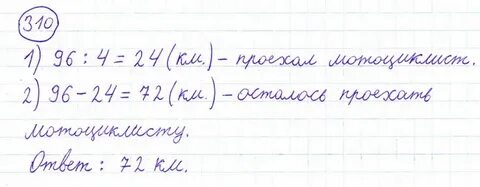 310
1) 96 : 4 = 24 (км.) – проехал мотоциклист.
2) 96 – 24 = 72 (км.) – осталось проехать
мотоциклисту.
Ответ : 72 км.